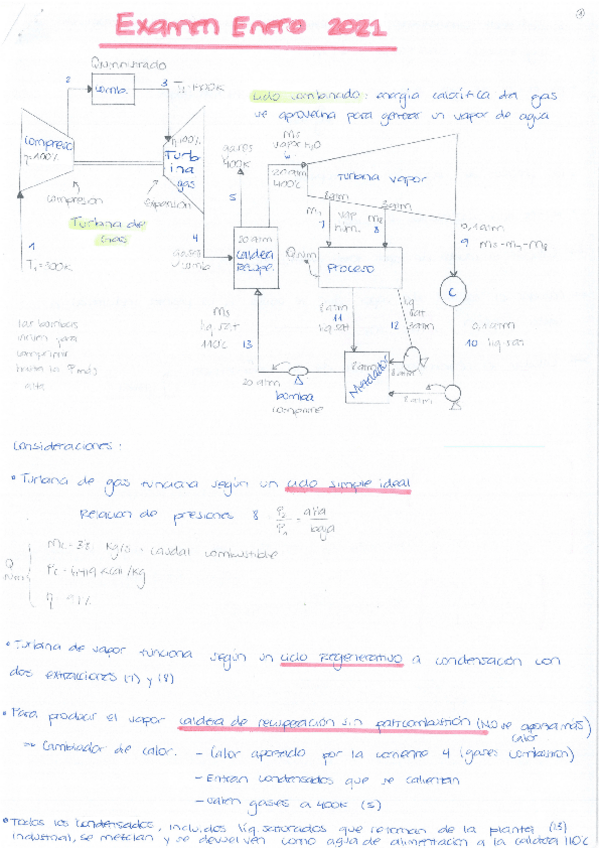 Examen Enero 2021
2
Q suministrado
2
comb.
3
T3=1400K
Ciclo combinado: energía calorífica del gas
se aprovecha para generar un vapor de agua
compresor
η=100%
η=100%
Turbina
gas
gases
400K
m5
vapor H2O
6
20 atm
400ºC
Turbina vapor
compresion
expansión
Turbina de
Gas
5
m7
7
vap
hum.
m8
8
0,1 atm
9 m5-m7-m8
1
T1=300K
4
gases
comb
20 atm
caldera
recupe.
Q sum
Proceso
C
m5
liq. sat
110ºC 13
2 atm
11
liq. sat
12
liq
sat
0,1 atm
10 liq. sat
las bombas
sirven para
comprimir
hasta la P más
alta
2 atm
Mezclador
20 atm
bomba
comprime
2 atm
Consideraciones:
• Turbina de gas funciona según un ciclo simple ideal
Relación de presiones 8 = P2/P1 = alta/baja
Q
sum
mc = 3'8 Kg/s = caudal combustible
η = 97%
• Turbina de vapor funciona según un ciclo Regenerativo a condensación con
dos extracciones (7) y (8)
• Para producir el vapor caldera de recuperación sin postcombustión (NO se aporta más)
calor
→ Cambiador de calor. – Calor aportado por la corriente 4 (gases combustión)
– Entran condensados que se calientan
– Salen gases a 400K (5)
• Todos los condensados, incluidos liq. saturados que retornan de la planta (13)
industrial, se mezclan y se devuelven como agua de alimentación a la caldera 110ºC